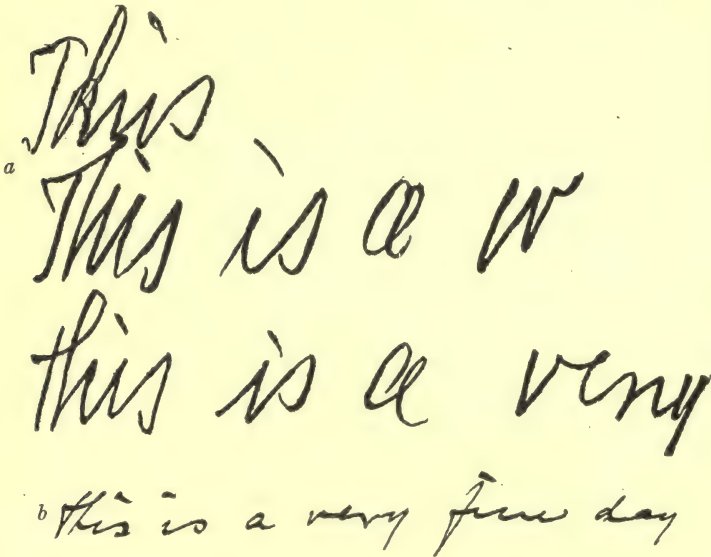 This
a This is a w
this is a very
b this is a very fine day